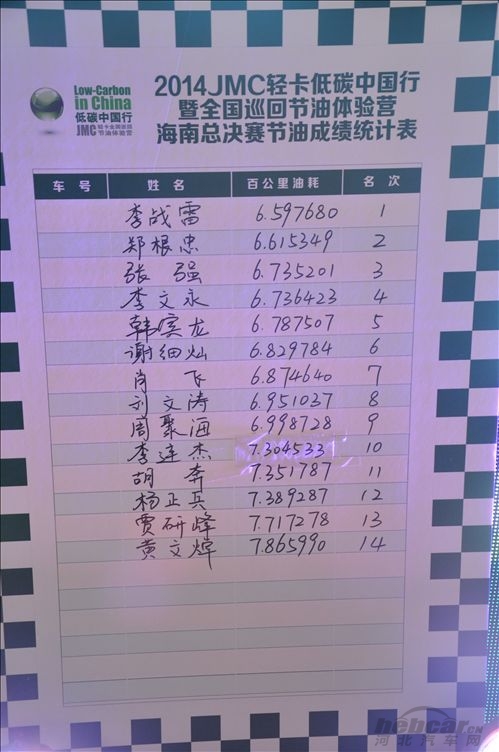 Low-Carbon
in China
低碳中国行
JMC 轻卡全国巡回
节油体验营
2014JMC轻卡低碳中国行
暨全国巡回节油体验营
海南总决赛节油成绩统计表
车号 姓名 百公里油耗 名次
李战雷 6.597680 1
郑根忠 6.615349 2
张强 6.735201 3
李文永 6.736423 4
韩宾龙 6.787507 5
谢细灿 6.829784 6
肖飞 6.874640 7
刘文涛 6.951037 8
周聚海 6.998728 9
李连杰 7.304533 10
胡奔 7.351787 11
杨正兵 7.389287 12
贾研峰 7.717278 13
黄文焯 7.865990 14
hebcar.CN
河北汽车网